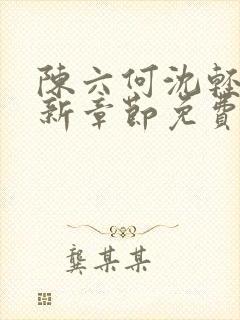 陳六何沈輕
新章節免費
龔某某